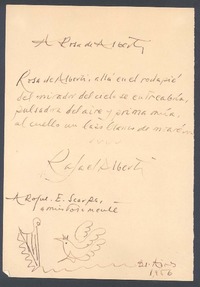 A Rosa de Alberti
Rosa de Alberti, allá en el rodapié
del mirador del cielo se entreabría,
pulsadora del aire y prima mía,
al cuello un lazo blanco de moaré.
Rafael Alberti
A Roque. E. Scarpa,
amistosamente
Bs. Aires
1956